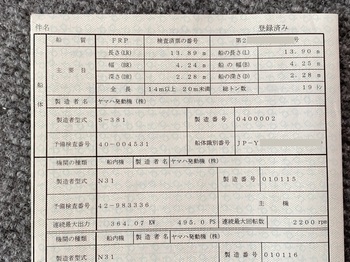 件名 登録済み
船質 FRP 検査済票の番号 第2 号
船体 主要目 長さ(LR) 13.89 m 船の長さ(L) 13.90 m
幅(BR) 4.24 m 船の幅(B) 4.25 m
深さ(DR) 2.28 m 船の深さ(D) 2.28 m
全長 14m以上 20m未満 総トン数 19トン
製造者名 ヤマハ発動機(株)
製造者型式 S-381 製造番号 0400002
予備検査番号 40-004531 船体識別番号 JP-Y
機関の種類 船内機 製造者名 ヤマハ発動機(株)
製造者型式 N31 製造番号 010115
予備検査番号 42-983336 主機
連続最大出力 364.07 KW 495.0 PS 連続最大回転数 2200rpm
機関の種類 船内機 製造者名 ヤマハ発動機(株)
製造者型式 N31 製造番号 010116